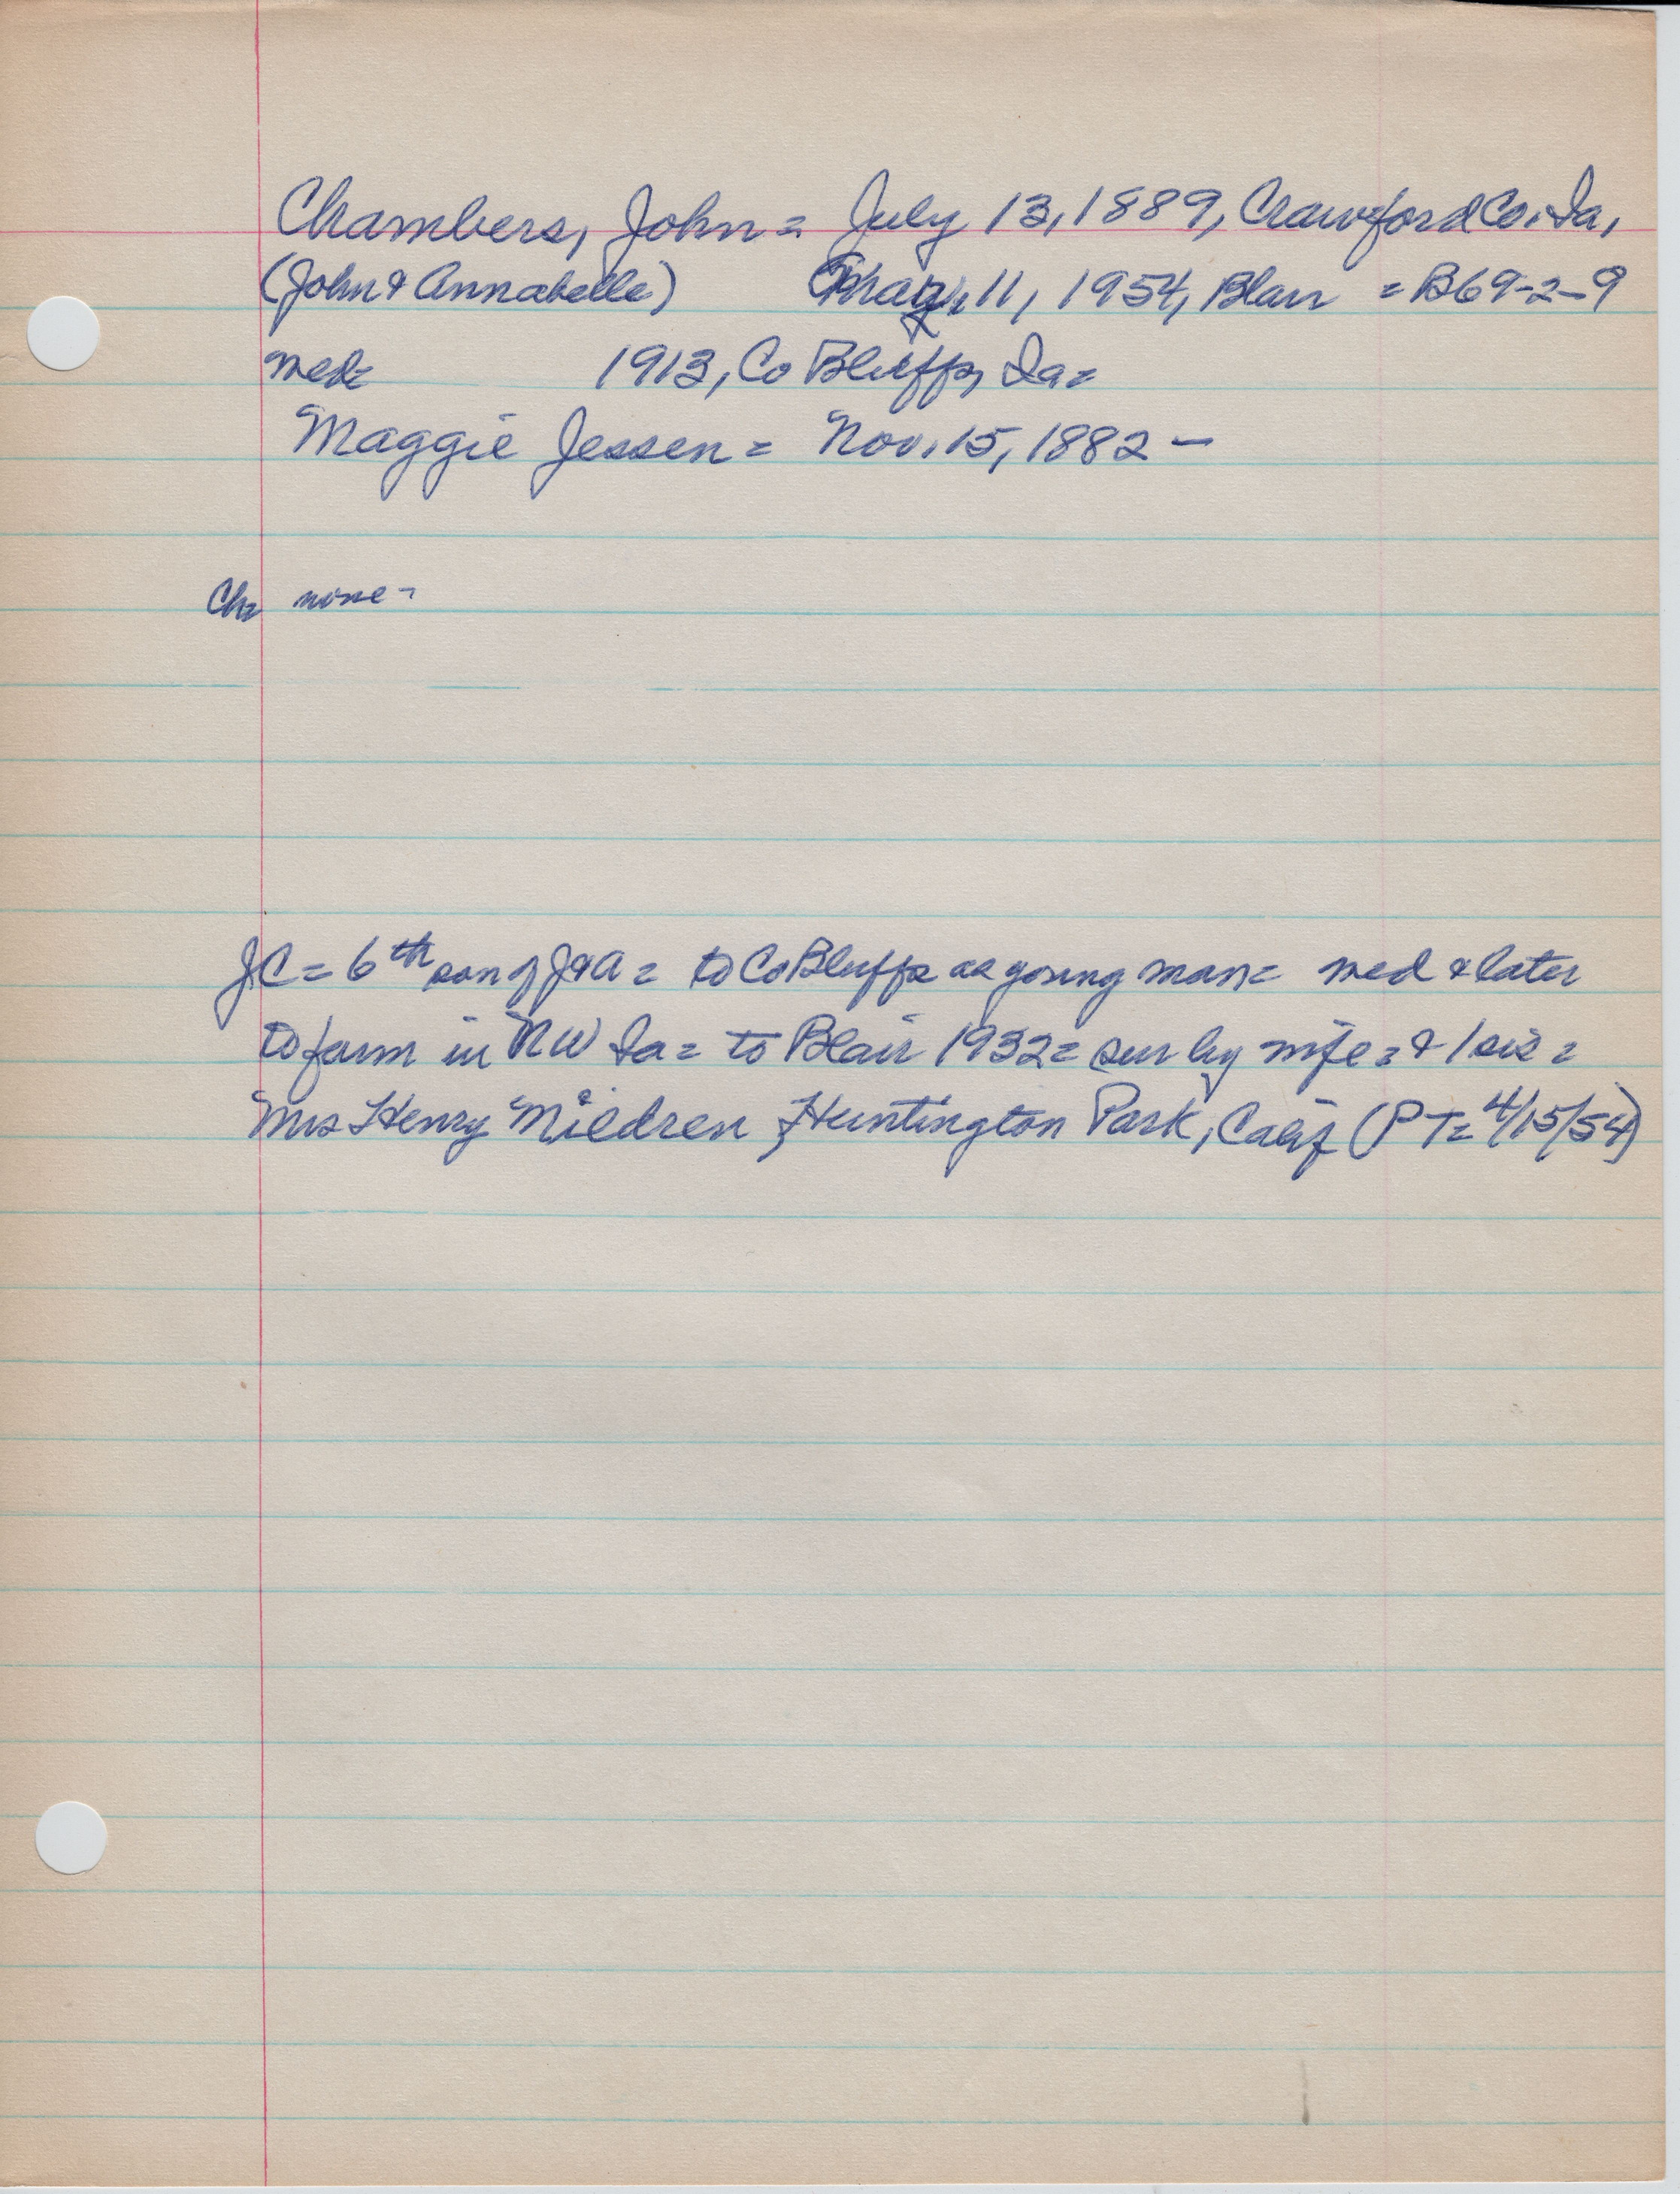 Chambers, John = July 13, 1889, Crawford Co. Ia,
(John & Annabelle) 11, 1954, Blair = B69-2-9
med= 1913, Co Bluffs, Ia=
Maggie Jessen = Nov. 15, 1882 -
Ch= none -
JC = 6th son of J&A = to Co Bluffs as young man= med & later
to farm in NW Ia = to Blair 1932 = sur by wife = & 1 sis =
Mrs Henry Mildren, Huntington Park, Calif (PT= 4/15/54)